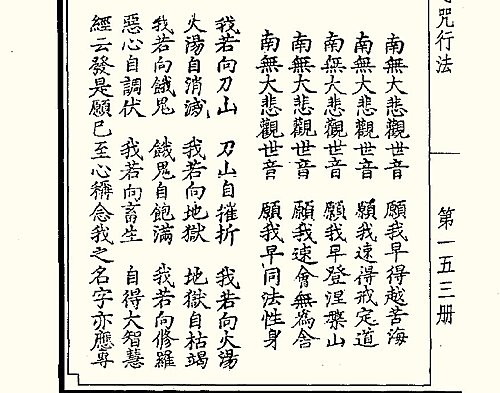 咒行法
第一五三册
南無大悲觀世音 願我早得越苦海
南無大悲觀世音 願我速得戒定道
南無大悲觀世音 願我早登涅槃山
南無大悲觀世音 願我速會無為舍
南無大悲觀世音 願我早同法性身
我若向刀山 刀山自摧折 我若向火湯
火湯自消滅 我若向地獄 地獄自枯竭
我若向餓鬼 餓鬼自飽滿 我若向修羅
惡心自調伏 我若向畜生 自得大智慧
經云發是願已至心稱念我之名字亦應專